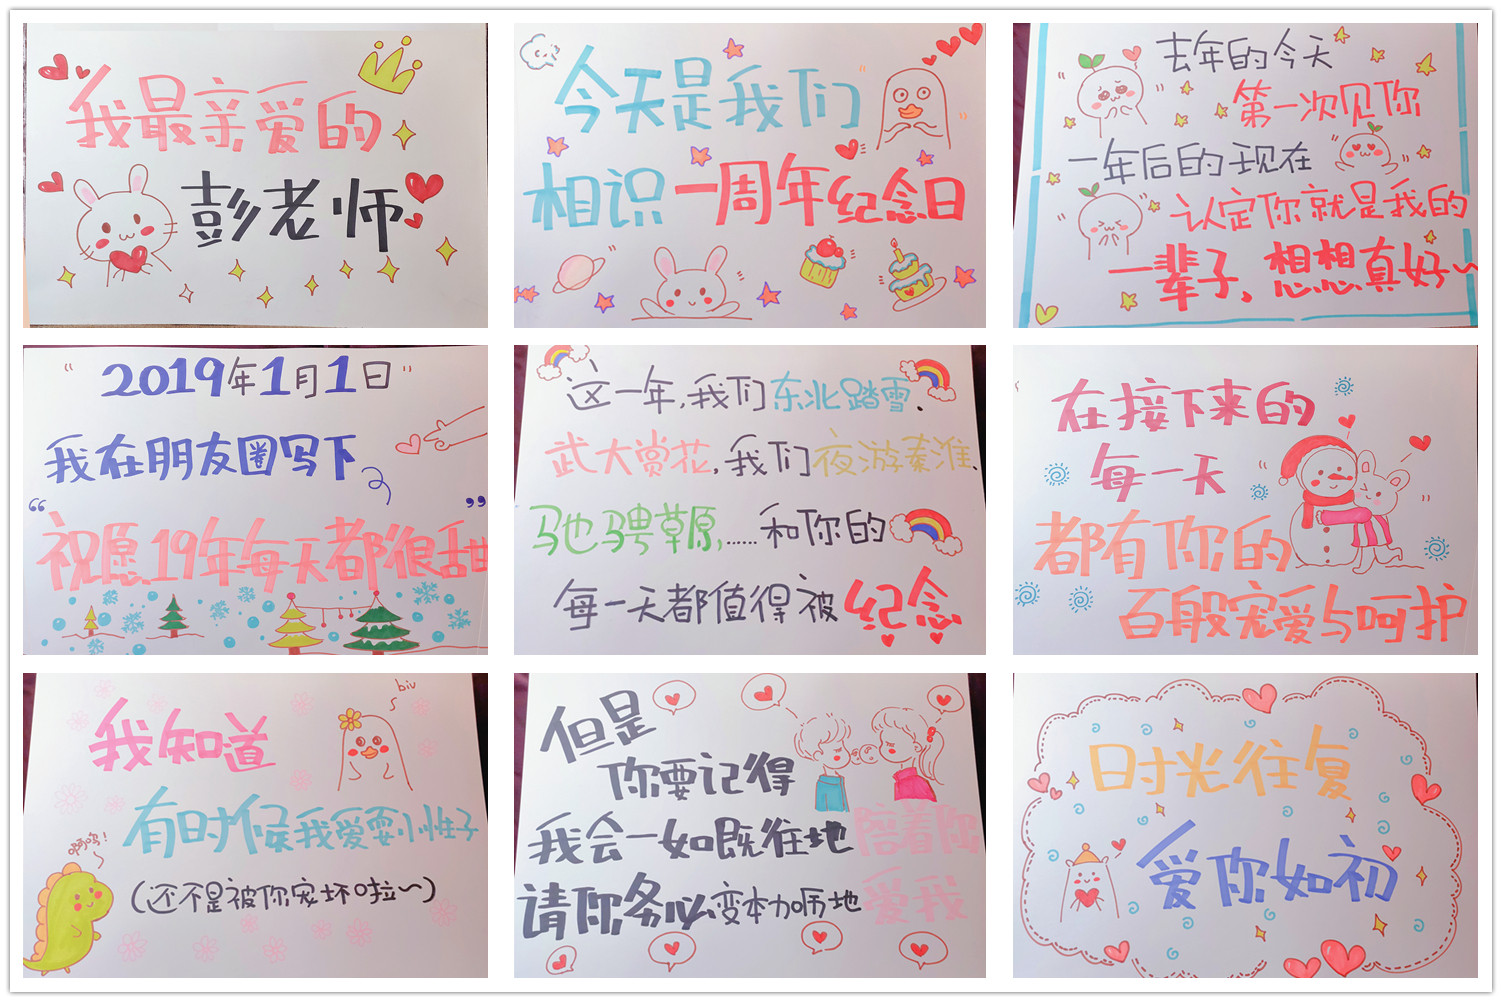 我最亲爱的
彭老师
今天是我们
相识一周年纪念日
去年的今天
第一次见你
一年后的现在
认定你就是我的
一辈子,想想真好~
2019年1月1日
我在朋友圈写下
“祝愿19年每天都很甜”
这一年,我们东北踏雪,
武大赏花,我们夜游秦淮、
驰骋草原,……和你的
每一天都值得被纪念
在接下来的
每一天
都有你的
百般宠爱与呵护
biu
我知道
有时候我爱耍小性子
啊呜!
(还不是被你宠坏啦~)
但是
你要记得
我会一如既往地陪着你
请你务必变本加厉地爱我
时光往复
爱你如初